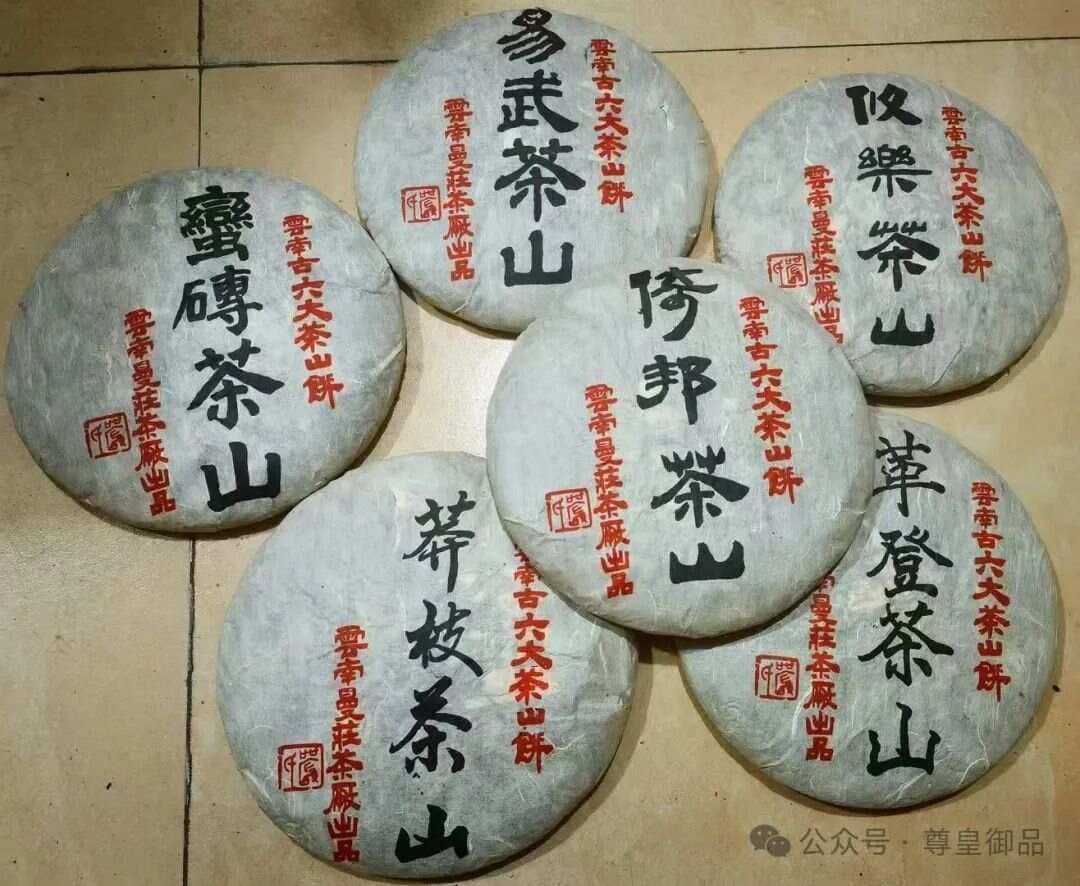 雲南古六大茶山餅
易武茶山
雲南曼莊茶厰出品
雲南古六大茶山餅
攸樂茶山
雲南曼莊茶厰出品
雲南古六大茶山餅
蠻磚茶山
雲南曼莊茶厰出品
雲南古六大茶山餅
倚邦茶山
雲南曼莊茶厰出品
雲南古六大茶山餅
莽枝茶山
雲南曼莊茶厰出品
雲南古六大茶山餅
革登茶山
曼莊茶厰出品
公众号·尊皇御品